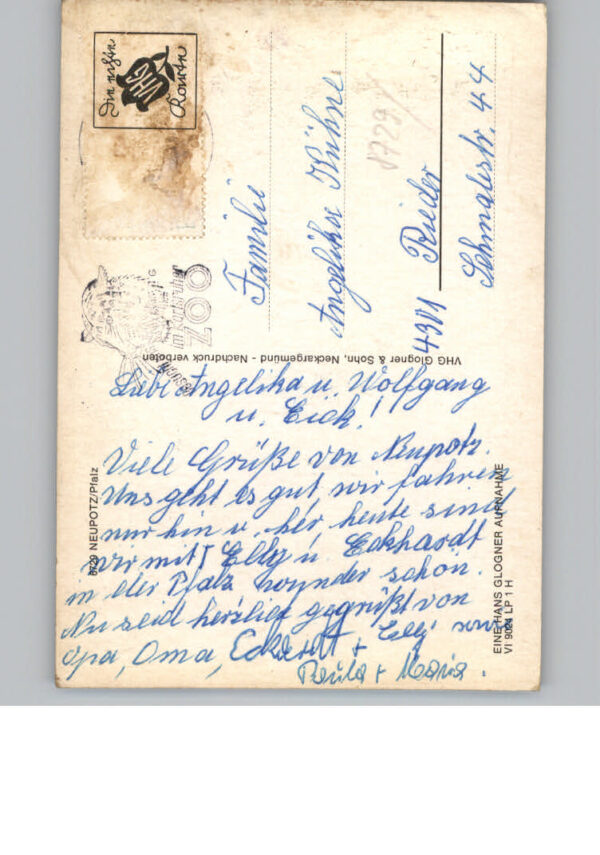 6729 NEUPOTZ/Pfalz
Liebe Angelika u. Wolfgang
u. Eick!
Viele Grüße von Neupotz.
Uns geht es gut, wir fahren
nur hin u. her, heute sind
wir mit Elly u. Eckhardt
in der Pfalz wunder schön.
Nu seid herzlich gegrüßt von
Opa, Oma, Eckhardt + Elly sowie
Paula + Maria.
EINE HANS GLOGNER AUFNAHME
VI 9024 LP 1 H
VHG Glogner & Sohn, Neckargemünd - Nachdruck verboten
im Karlsruher
ZOO
Familie
Angelika Kühne
4301 Rieder
Schmalestr. 44